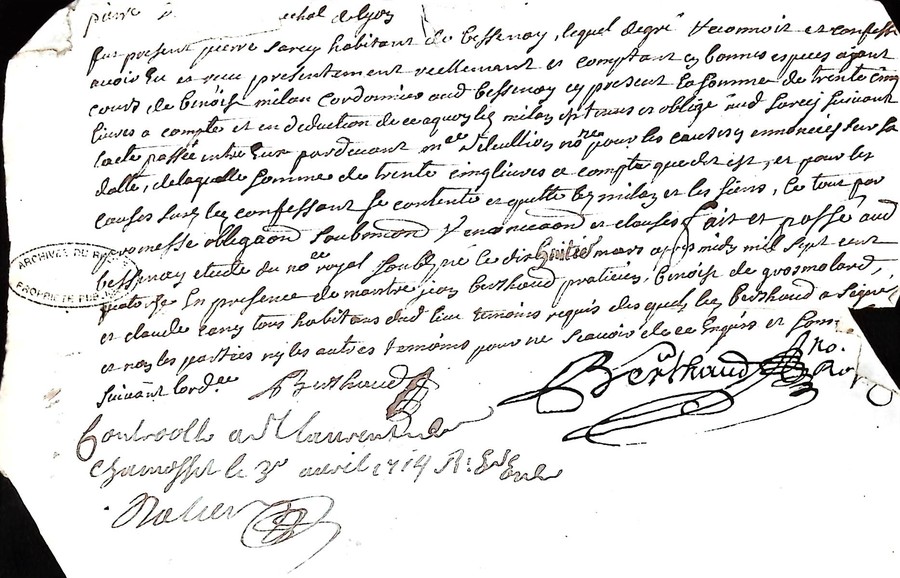 pierre echal de lyon
fut present pierre Sarcy habitant de bessenay, lequel de gré Reconnoit et confesse
avoir Eu et recu présentement reellemant et comptant en bonnes especes ayant
cours de benoist milan cordonnier aud bessenay cy present la somme de trente cinq
livres a compte et en deduction de ce a quoy led milan est tenus et obligé aud Sarcy suivant
lacte passée entre Eux pardevant me no.re pour les causes y ennoncées sur sa
datte, de laquelle somme de trente cinq livres a compte que dit est, et pour les
causes Sarcy led confessant se contente et quitte led milan et les siens, le tout par
promesse obligaon Soubmon Renonciaon et clauses fait et passé aud
bessenay etude du no.re royal Soubzné le dixhuitiem mars apres medy mil sept cent
quatorze En presence de maitre jean berthaud praticien, benoist de grosmolard,
et claude tous habitans dud lieu temoins requis desquels led berthaud a Signé
et non les parties ny les autres temoins pour ne scavoir de ce Enquis et Som
suivant lord.ce Berthaud
Berthaud no. R.
Controollé a St laurent de
Chamosset le 3e avril 1714 R:
ARCHIVES DU RH
PROPRIETE PUBLIQUE